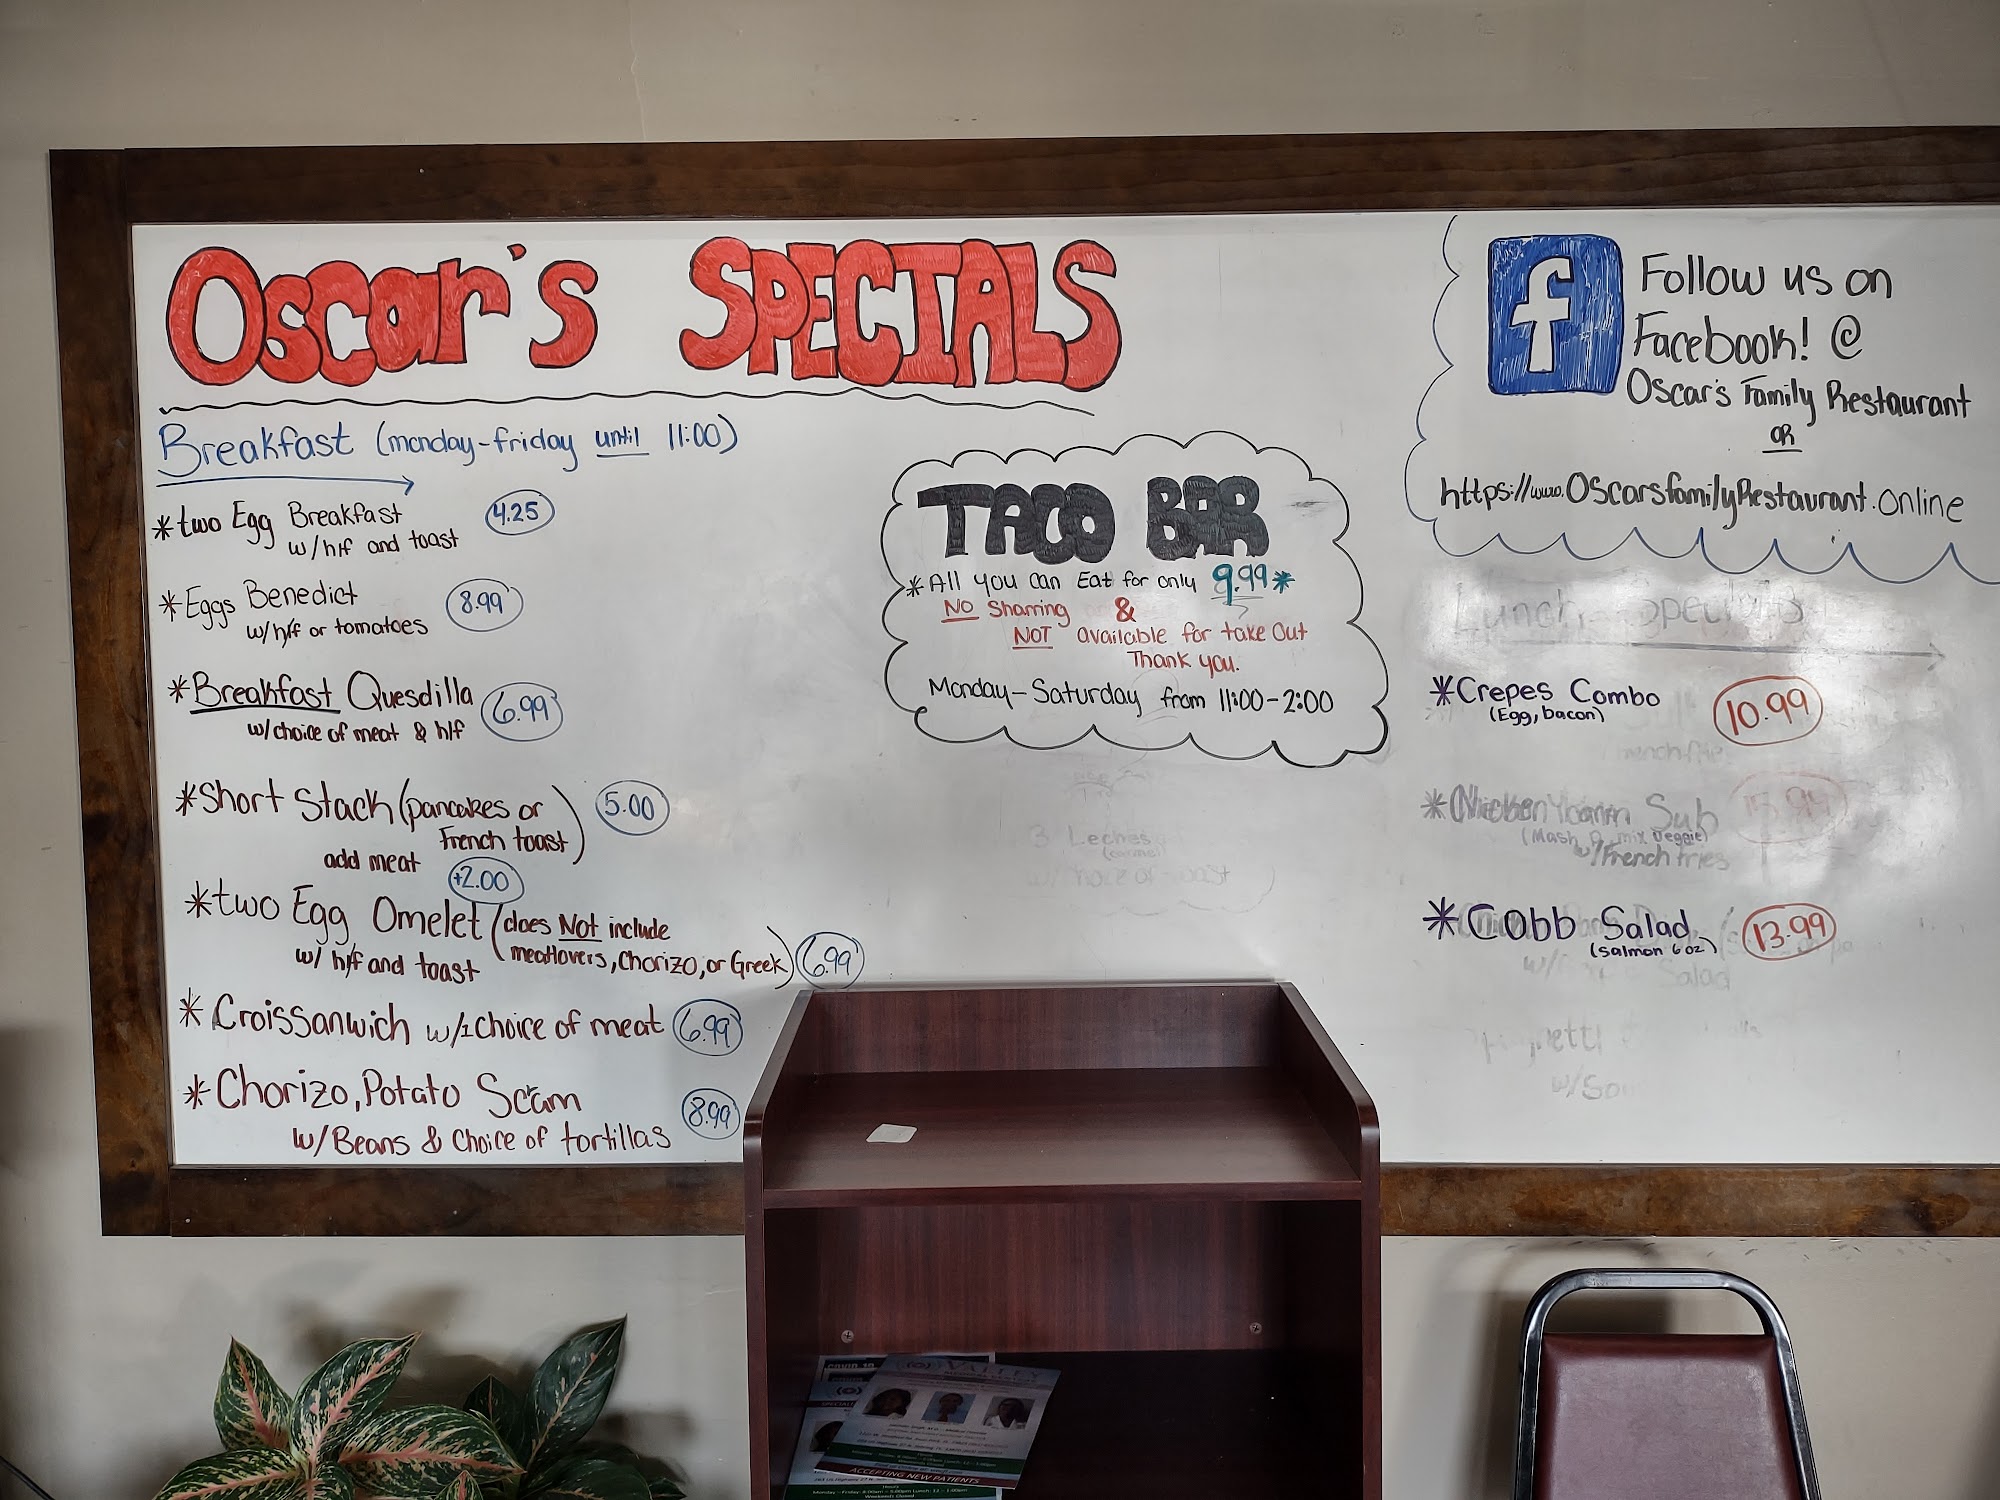 Oscar's SPECIALS
Breakfast (monday-friday until 11:00)
*two Egg Breakfast 4.25
w/h/f and toast
*Eggs Benedict 8.99
w/h/f or tomatoes
*Breakfast Quesdilla 6.99
w/choice of meat & h/f
*Short Stack (pancakes or 5.00
French toast)
add meat
+2.00
*two Egg Omelet (does NOT include
w/ h/f and toast meatlovers, Chorizo, or Greek) 6.99
* Croissanwich w/1 choice of meat 6.99
* Chorizo, Potato Scram 8.99
w/Beans & choice of tortillas
TACO BAR
*All you can Eat for only 9.99*
NO Sharring &
NOT available for take Out
Thank you.
Monday-Saturday from 11:00-2:00
3 Leches
Follow us on
Facebook! @
Oscar's Family Restaurant
OR
https://www.OscarsfamilyRestaurant.Online
Lunch Specials
*Crepes Combo 10.99
(Egg, bacon)
Sub
w/French fries
*Cobb Salad 13.99
(salmon 6 oz)
Salad
COVID-19
VALLEY
ACCEPTING NEW PATIENTS